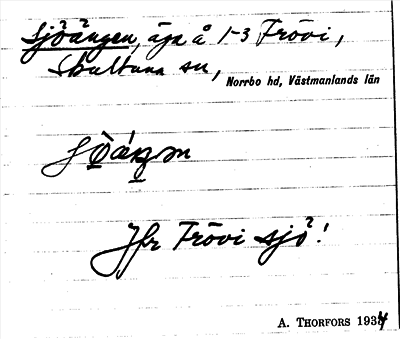 Sjöängen, äga å 1-3 Frövi,
Skultuna sn,
Norrbo hd, Västmanlands län
Jfr Frövi sjö?!
A. THORFORS 1934